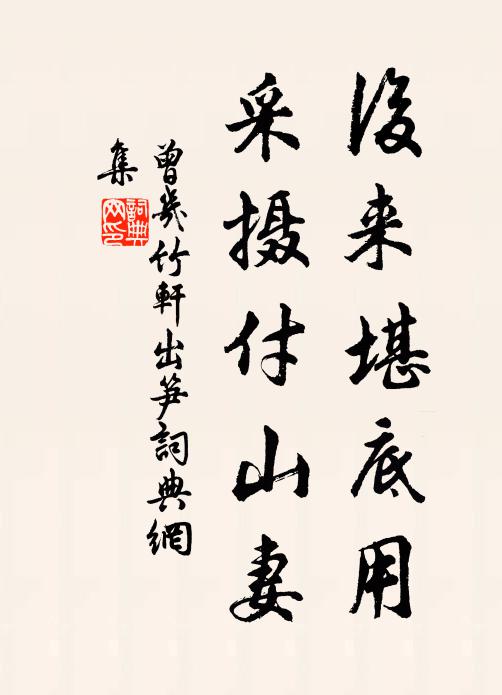 後来堪底用
采摄付山妻
曾幾竹軒出笋詞典網
集
詞典
网印